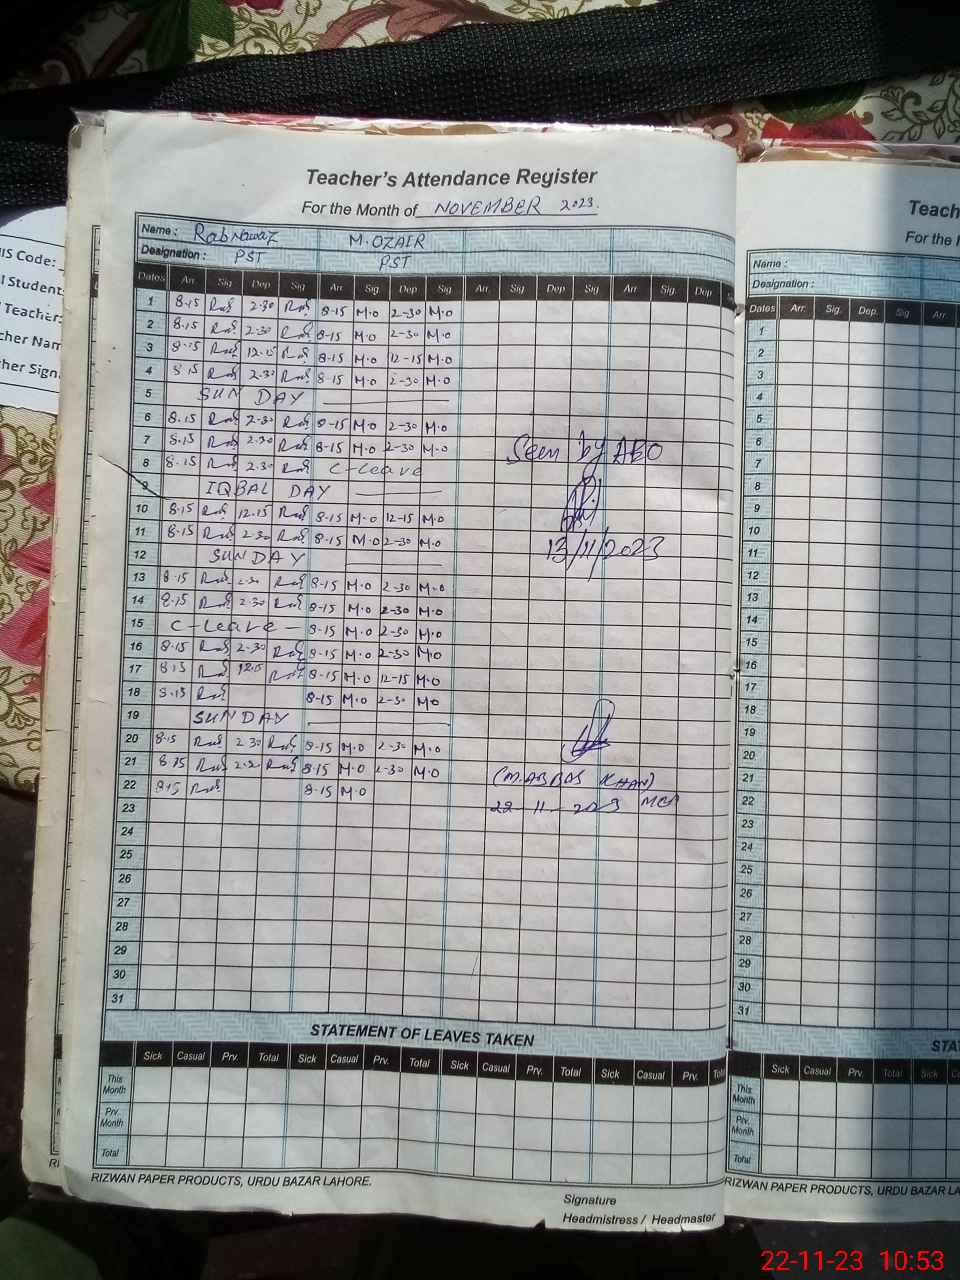 Teacher's Attendance Register
For the Month of NOVEMBER 2023.
Name : Rab Nawaz M. OZAIR
Designation : PST PST
Dates Arr. Sig Dep Sig Arr. Sig. Dep Sig Arr. Sig Dep Sig Arr. Sig. Dep
1 8.15 2.30 8-15 M.O 2-30 M.O
2 8.15 2.30 8-15 M.O 2-30 M.O
3 8.15 12.15 8-15 M.O 12-15 M.O
4 8.15 2.30 8-15 M.O 2-30 M.O
5 SUN DAY
6 8.15 2.30 8-15 M.O 2-30 M.O
7 8.15 2.30 8-15 M.O 2-30 M.O
Seen by AEO
8 8.15 2.30 C-Leave
9 IQBAL DAY
10 8.15 12.15 8-15 M.O 12-15 M.O
11 8.15 2.30 8-15 M.O 2-30 M.O
13/11/2023
12 SUNDAY
13 8.15 8-15 M.O 2-30 M.O
14 8.15 2.30 8-15 M.O 2-30 M.O
15 C-Leave - 8-15 M.O 2-30 M.O
16 8.15 2.30 8-15 M.O 2-30 M.O
17 8.15 12.15 8-15 M.O 12-15 M.O
18 8.15 8-15 M.O 2-30 M.O
19 SUNDAY
20 8.15 2.30 8-15 M.O 2-30 M.O
21 8.15 8-15 M.O 2-30 M.O
(M. ABBAS KHAN)
22 8.15 8-15 M.O
22-11-2023 MEA
23
24
25
26
27
28
29
30
31
STATEMENT OF LEAVES TAKEN
Sick Casual Prv. Total Sick Casual Prv. Total Sick Casual Prv. Total Sick Casual Prv.
This Month
Prv. Month
Total
RIZWAN PAPER PRODUCTS, URDU BAZAR LAHORE.
Signature
Headmistress / Headmaster
Name :
Designation :
Dates Arr. Sig. Dep. Sig Arr.
1
2
3
4
5
6
7
8
9
10
11
12
13
14
15
16
17
18
19
20
21
22
23
24
25
26
27
28
29
30
31
Sick Casual Prv. Total Sick
This Month
Prv. Month
Total
RIZWAN PAPER PRODUCTS, URDU BAZAR
22-11-23 10:53